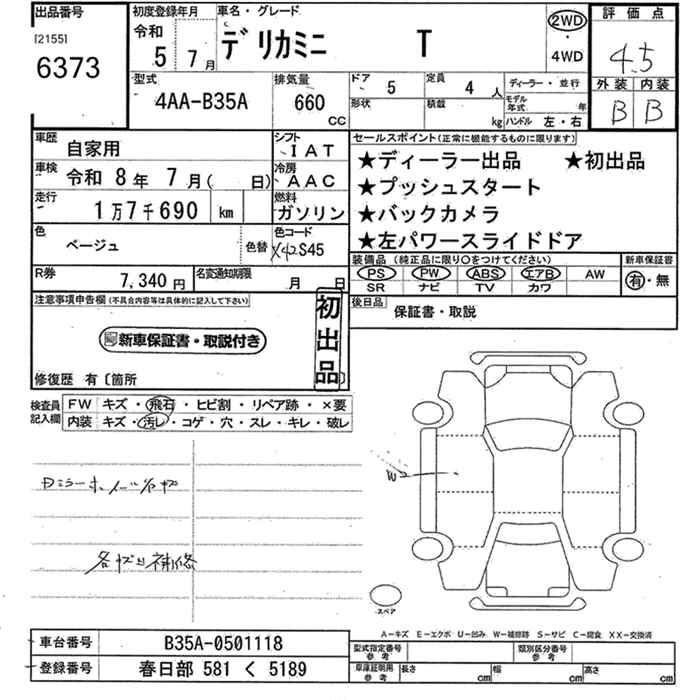 出品番号
[2155]
6373
初度登録年月
令和
5 7月
車名・グレード
デリカミニ T
2WD
・
4WD
評価点
4.5
外装 内装
B B
型式
4AA-B35A
排気量
660
CC
ドア 5
定員 4人
形状
積載 kg
ディーラー・並行
モデル年式 年
ハンドル 左・右
車歴 自家用
シフト IAT
車検 令和 8年 7月( 日)
冷房 AAC
走行 1万7千690 km
燃料 ガソリン
色 ベージュ
色替
色コード
X42S45
R券 7,340円
名変通知期限 月 日
セールスポイント(正常に機能するものに限ります)
★ディーラー出品 ★初出品
★プッシュスタート
★バックカメラ
★左パワースライドドア
装備品(純正品に限り○をつけてください)
新車保証書
PS PW ABS エアB AW
SR ナビ TV カワ
有・無
注意事項申告欄(不具合内容等は具体的に記入して下さい)
新車保証書・取説付き
初出品
修復歴 有〔箇所 〕
後日品
保証書・取説
検査員記入欄
FW キズ・飛石・ヒビ割・リペア跡・×要
内装 キズ・汚レ・コゲ・穴・スレ・キレ・破レ
各キズ補修
W
スペア
A-キズ E-エクボ U-凹み W-補修跡 S-サビ C-腐食 XX-交換済
車台番号 B35A-0501118
登録番号 春日部 581 く 5189
型式指定番号 参考
類別区分番号 参考
車庫証明用 参考
長さ cm
幅 cm
高さ cm